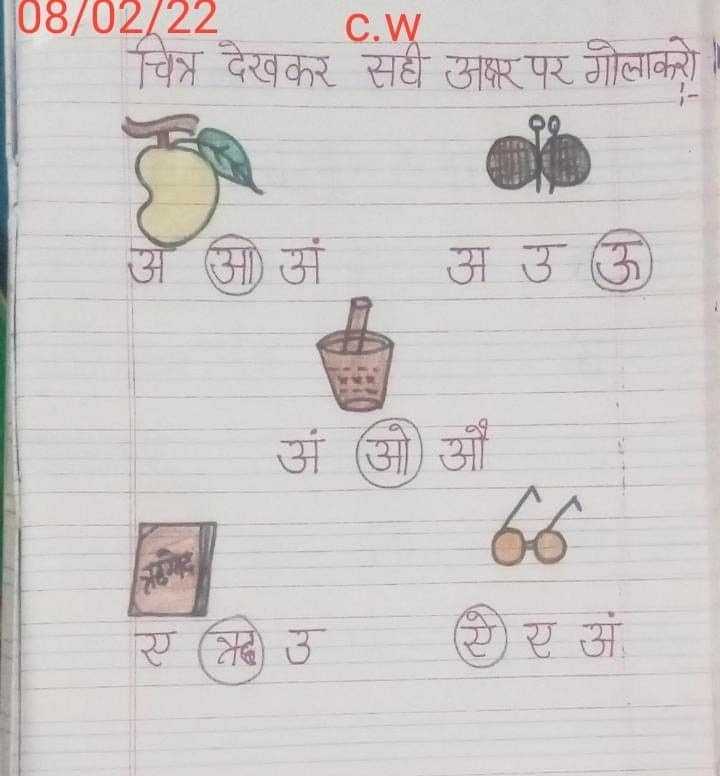 08/02/22 C.W
चित्र देखकर सही अक्षर पर गोलाकरो :-
अ आ अं अ उ ऊ
अं ओ औ
ऋग्वेद
ए ऋ उ ऐ ए अं